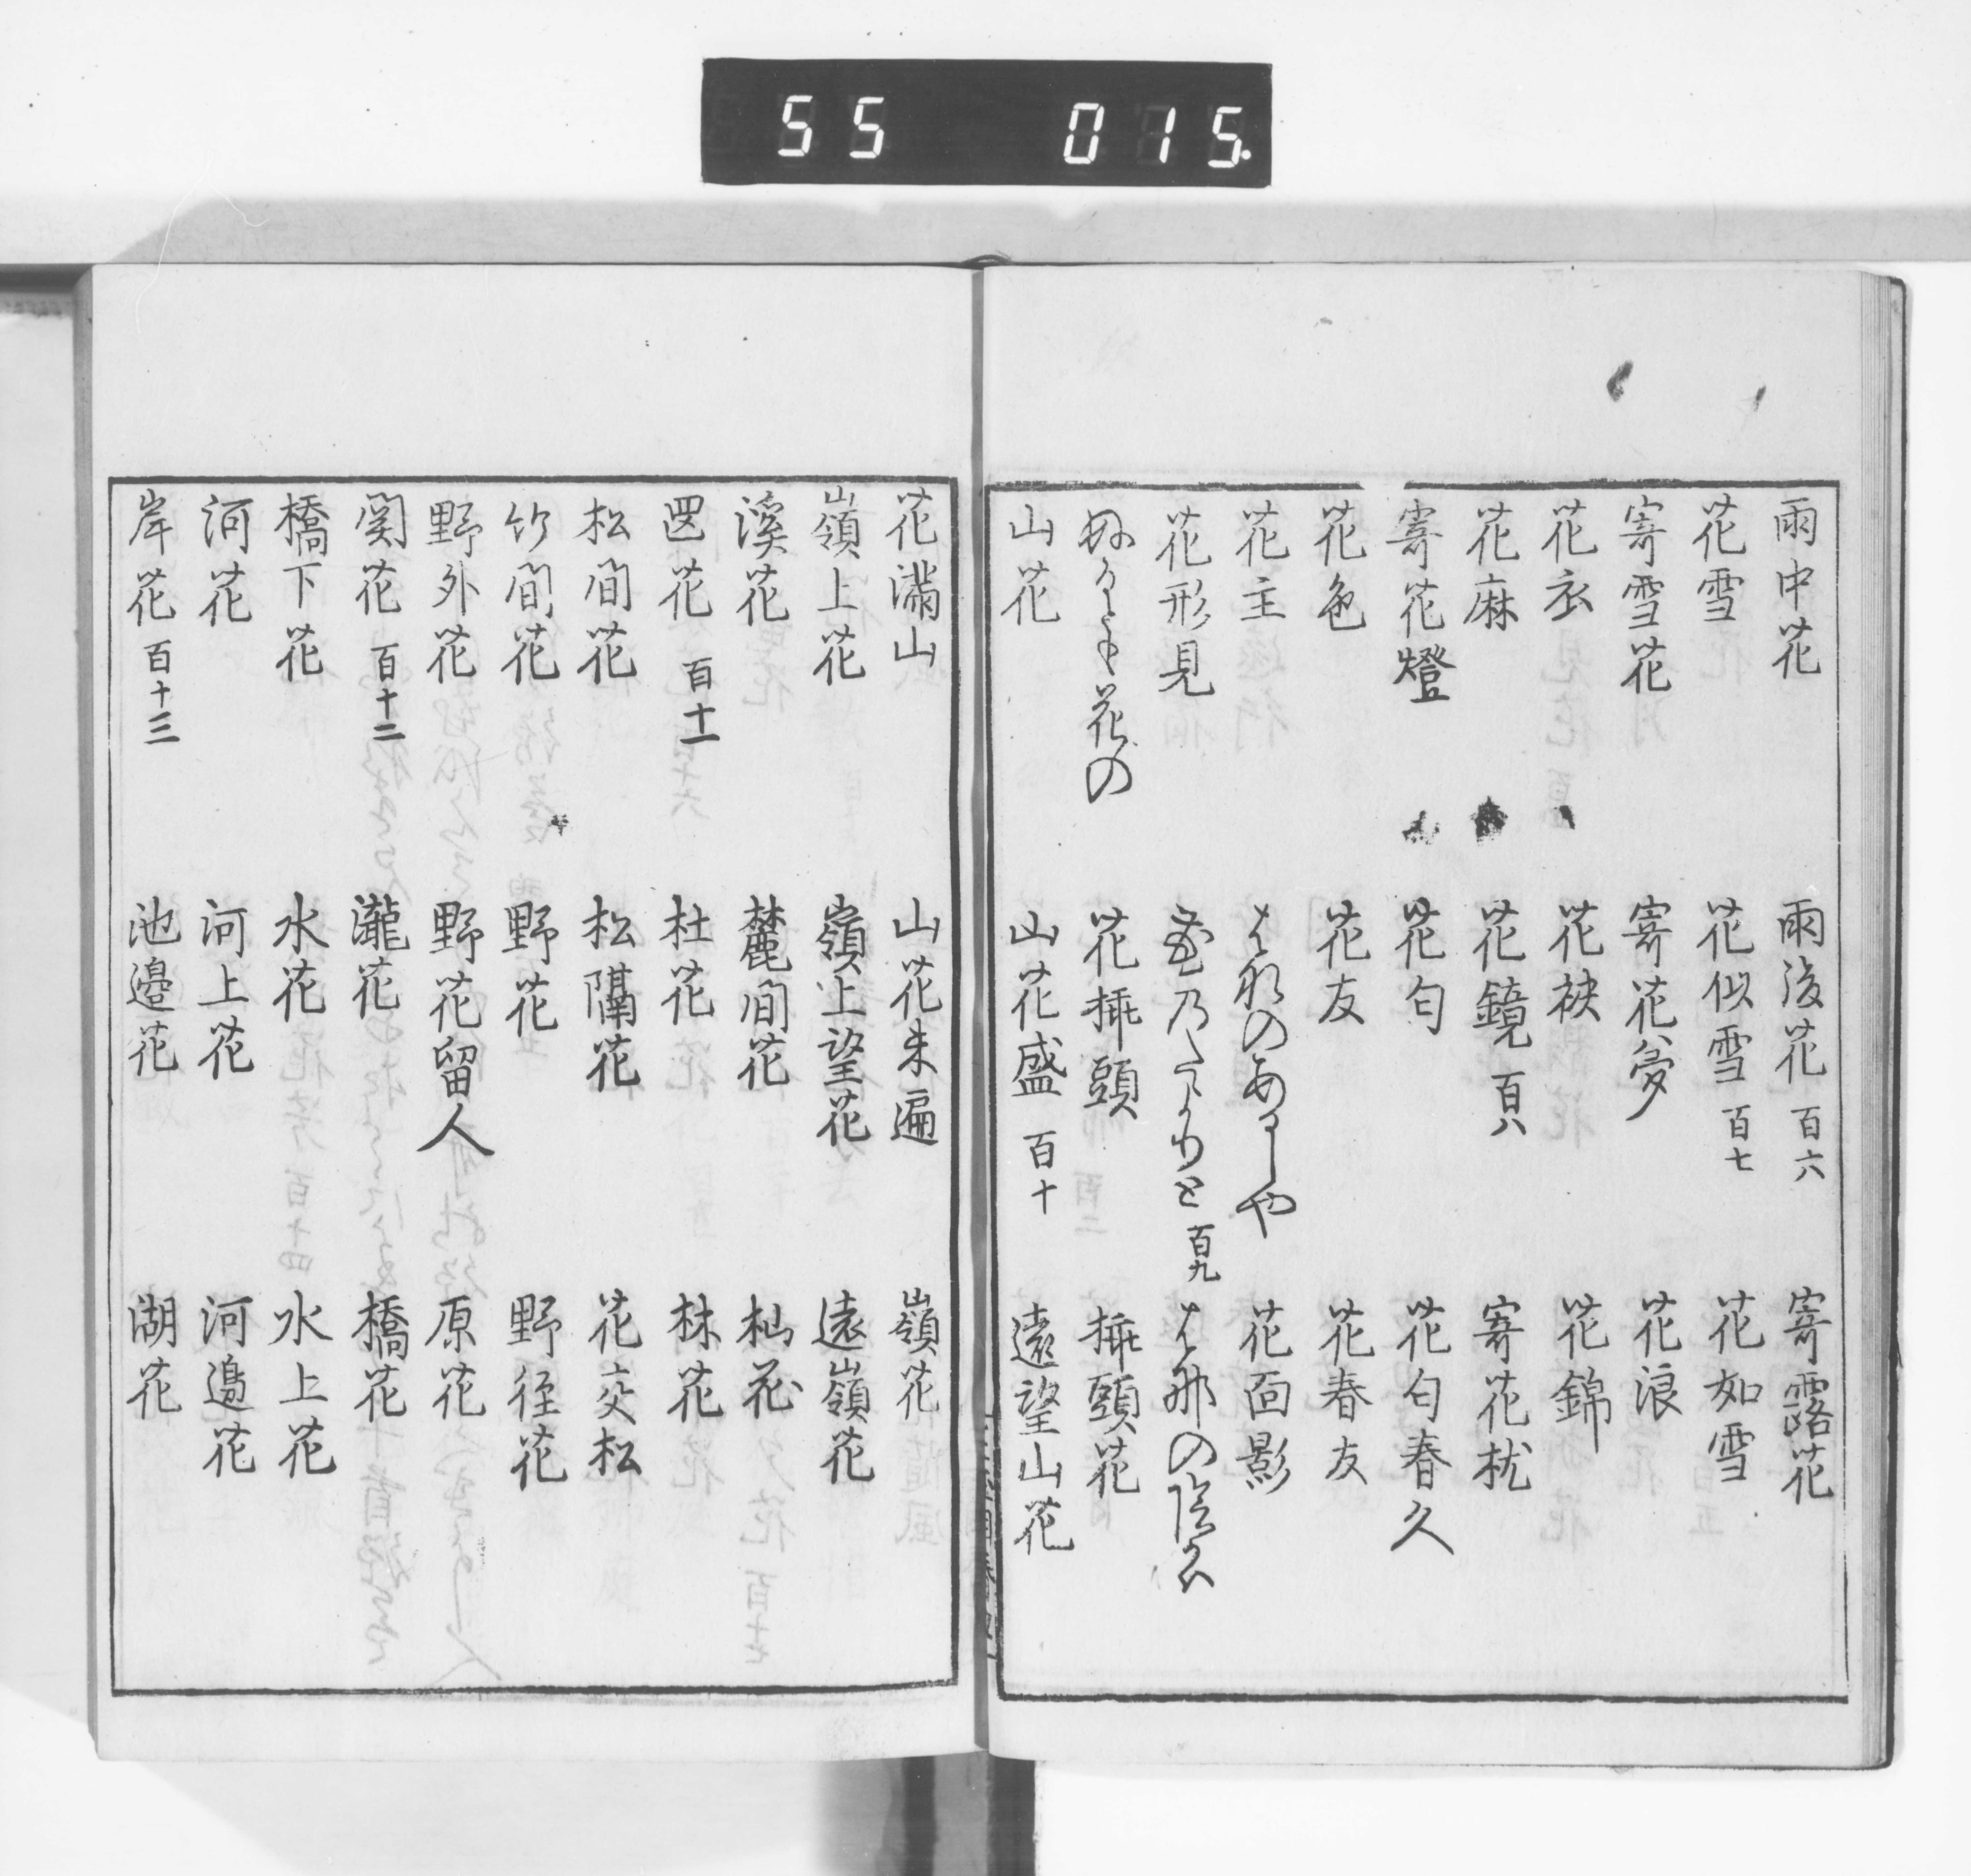 55 015.
雨中花 雨後花 百六 寄露花
花雪 花似雪 百七 花如雪
寄雪花 寄花夢 花浪
花衣 花袂 花錦
花麻 花鏡 百八 寄花枕
寄花燈 花匂 花匂春久
花色 花友 花春友
花主 はなのあるしや 花面影
花形見 百九 はなの陰かは
花の 花挿頭 挿頭花
山花 山花盛 百十 遠望山花
花満山 山花未遍 嶺花
嶺上花 嶺上望花 遠嶺花
溪花 麓間花 杣花
罡花 百十一 杜花 林花
松間花 松隔花 花交松
竹間花 野花 野径花
野外花 野花留人 原花
関花 百十二 瀧花 橋花
橋下花 水花 水上花
河花 河上花 河邊花
岸花 百十三 池邉花 湖花